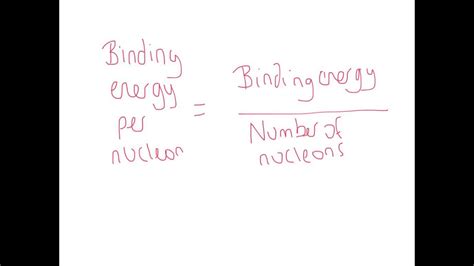 Binding
energy
per
nucleon
=
Binding energy
Number of
nucleons